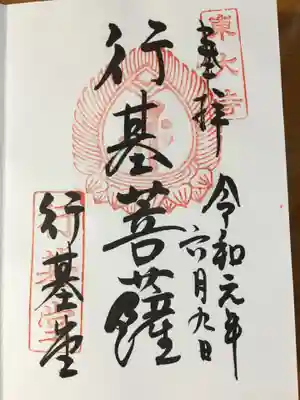 奉拝
東大寺
令和元年
六月九日
行基菩薩
行基堂
行基堂